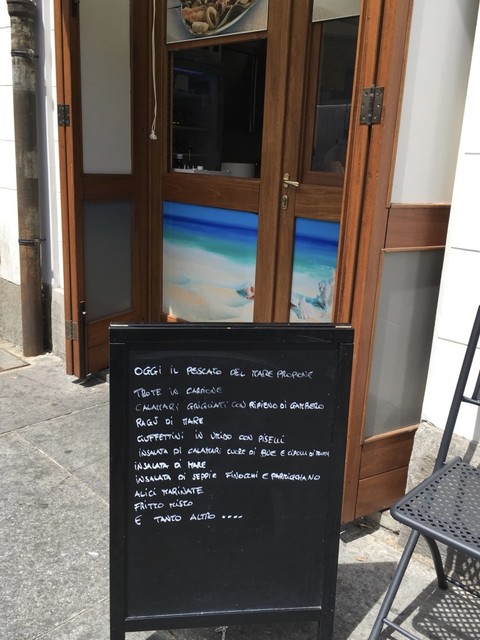 OGGI IL PESCATO DEL MARE PROPONE
TROTE IN CARPIONE
CALAMARI GRIGLIATI CON RIPIENO DI GAMBERO
RAGÙ DI MARE
CIUFFETTINI IN UMIDO CON PISELLI
INSALATA DI CALAMARI CUORE DI BUE E CIPOLLA DI
INSALATA DI MARE
INSALATA DI SEPPIE FINOCCHI E PARMIGGIANO
ALICI MARINATE
FRITTO MISTO
E TANTO ALTRO ....